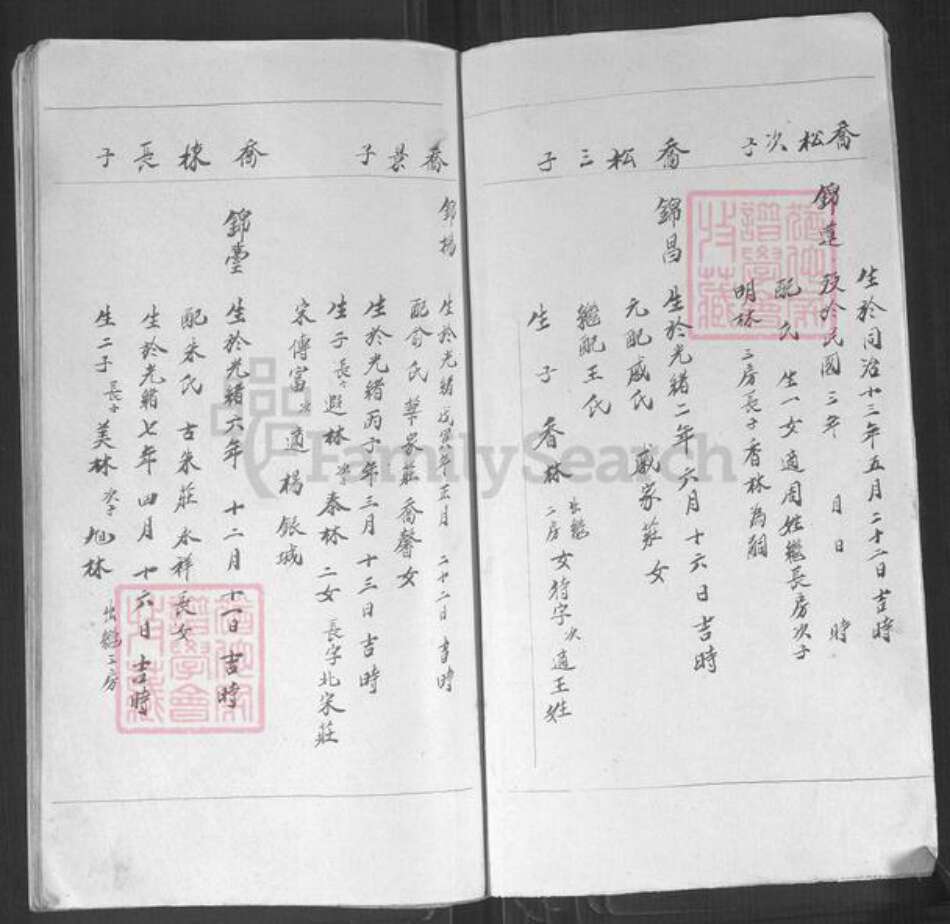 喬松次子
錦蓮
生於同治十三年五月二十二日吉時
歿於民國三年 月 日 時
配 氏 生一女適周姓繼長房次子
明林 三房長子香林為嗣
喬松三子
錦昌
生於光緒二年六月十六日吉時
元配戚氏 戚家莊女
繼配王氏
生 子 香林 出繼二房 女 待字 次適王姓
喬景子
錦楊
生於光緒戊寅年五月二十二日吉時
配俞氏 華家莊喬馨女
生於光緒丙子年三月十三日吉時
生子 長子 遐林 次子 春林 二女 長字北宋莊
宋傳富 次適楊銀城
喬棟長子
錦臺
生於光緒六年 十二月十一日吉時
配朱氏 古朱莊永祥長女
生於光緒七年四月十六日吉時
生二子 長子 美林 次子 旭林 出繼二房
譜學會
收藏
譜學會
收藏
FamilySearch